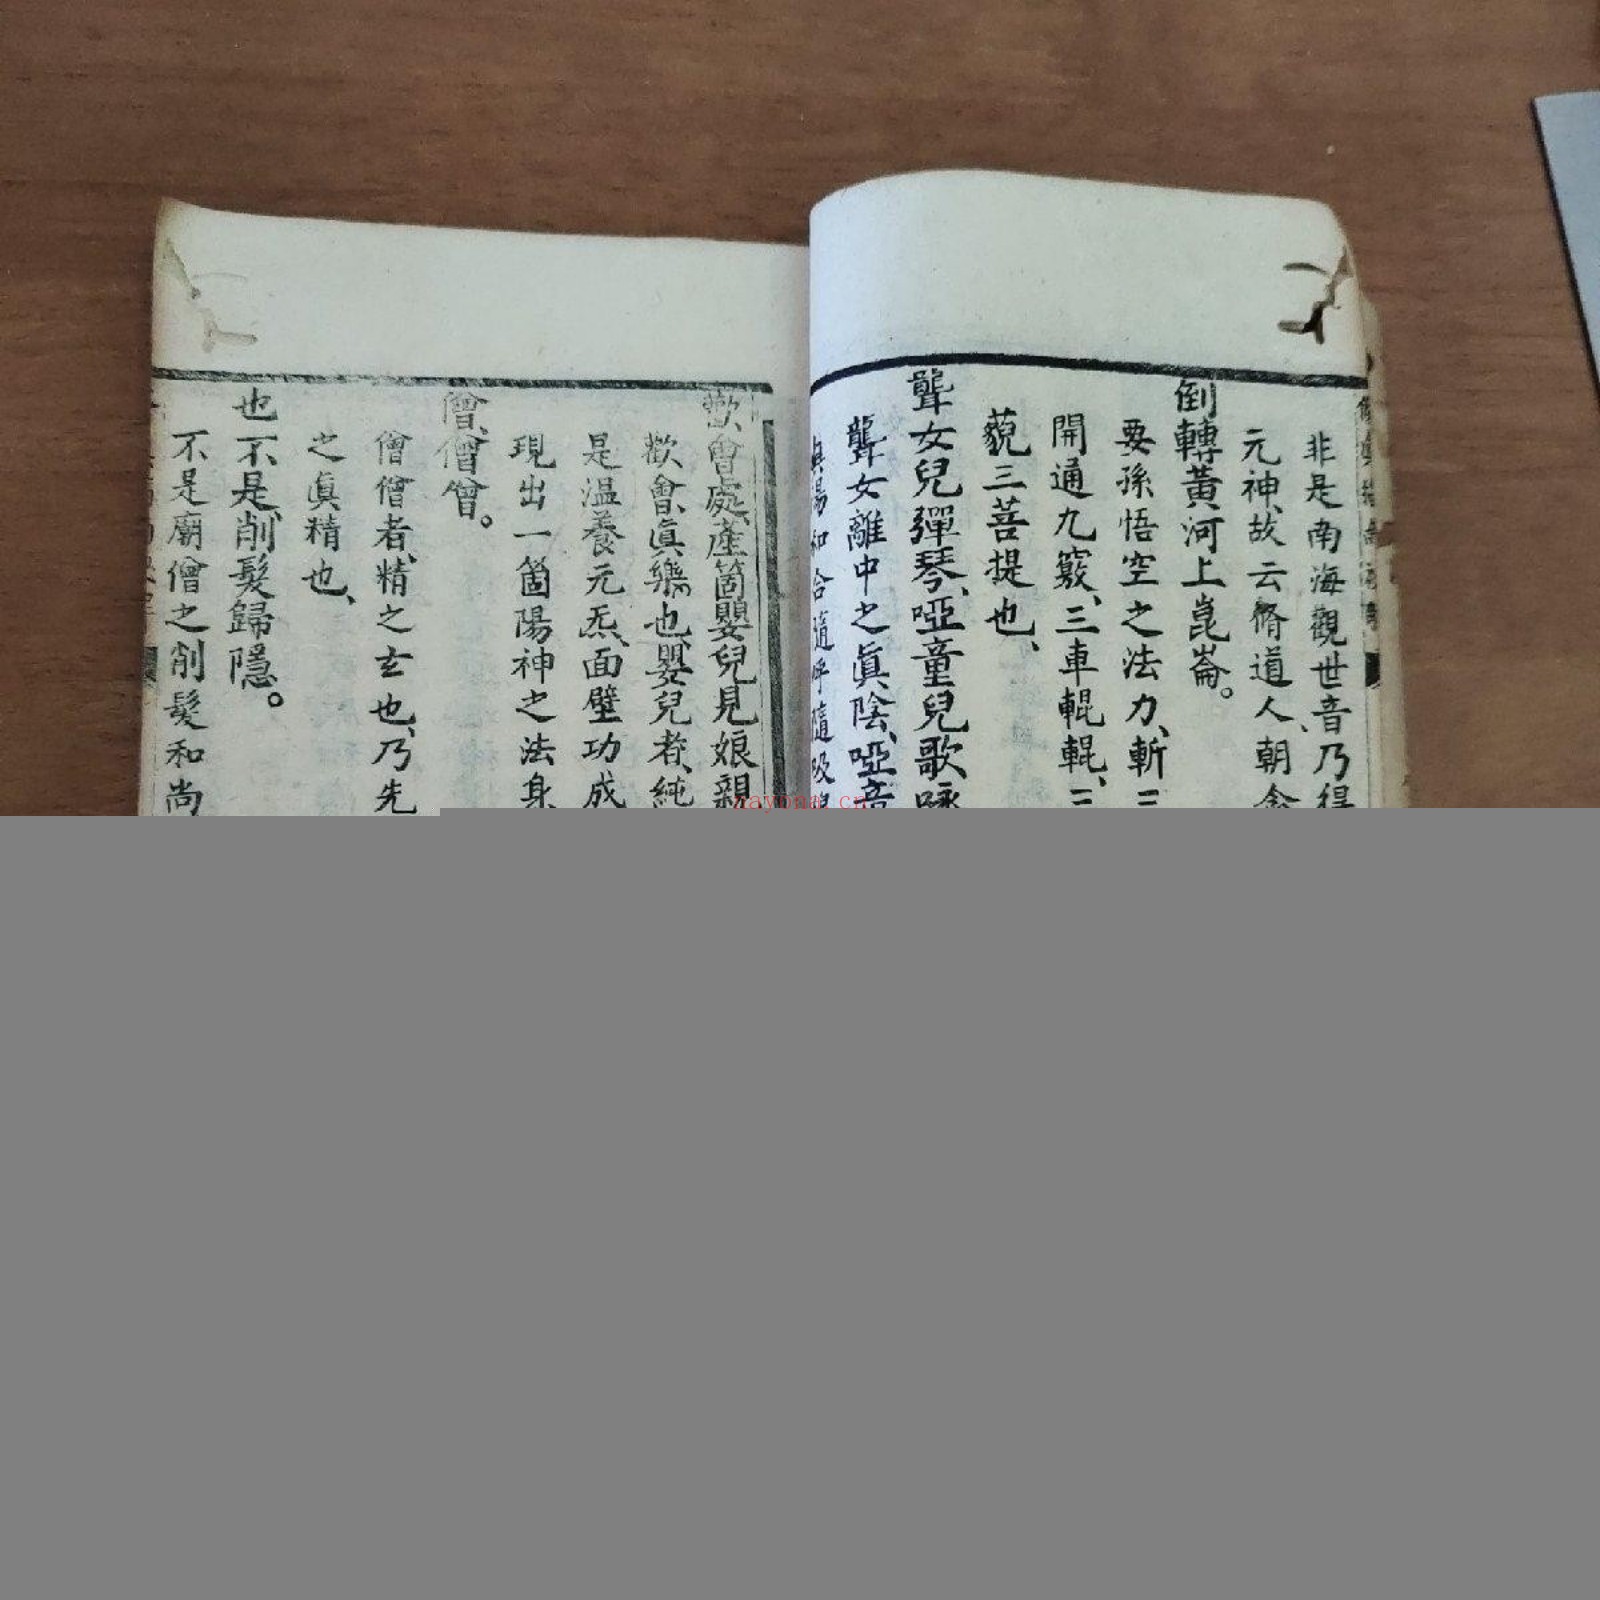 非是南海觀世音乃得
元神、故云脩道人、朝念
倒轉黃河上崑崙。
要孫悟空之法力、斬三
開通九竅、三車輥輥、三
藐三菩提也、
聾女兒彈琴、啞童兒歌詠
聾女離中之眞陰、啞童
眞陽和合隨呼隨吸
歡會處、產箇嬰兒見娘親
歡會、眞樂也、嬰兒者、純
是溫養元炁、面壁功成
現出一箇陽神之法身
僧、僧僧。
僧僧者、精之玄也、乃先
之眞精也、
也不是、削髮歸隱。
不是廟僧之削髮和尚